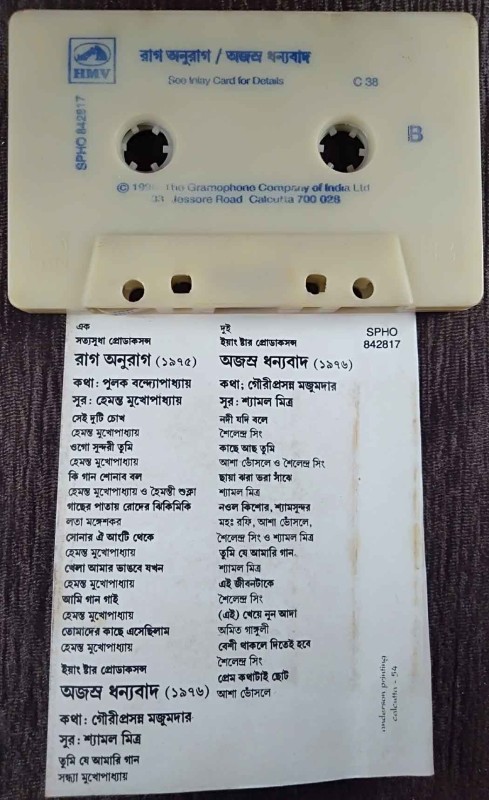 HMV
রাগ অনুরাগ / অজস্র ধন্যবাদ
See Inlay Card for Details
C 38
SPHO 842817
B
The Gramophone Company of India Ltd
33 Jessore Road Calcutta 700 028
এক
সত্যসুধা প্রোডাকসন্স
রাগ অনুরাগ (১৯৭৫)
কথা : পুলক বন্দ্যোপাধ্যায়
সুর : হেমন্ত মুখোপাধ্যায়
সেই দুটি চোখ
হেমন্ত মুখোপাধ্যায়
ওগো সুন্দরী তুমি
হেমন্ত মুখোপাধ্যায়
কি গান শোনাব বল
হেমন্ত মুখোপাধ্যায় ও হৈমন্তী শুক্লা
গাছের পাতায় রোদের ঝিকিমিকি
লতা মঙ্গেশকর
সোনার ঐ আংটি থেকে
হেমন্ত মুখোপাধ্যায়
খেলা আমার ভাঙবে যখন
হেমন্ত মুখোপাধ্যায়
আমি গান গাই
হেমন্ত মুখোপাধ্যায়
তোমাদের কাছে এসেছিলাম
হেমন্ত মুখোপাধ্যায়
ইয়াং ষ্টার প্রোডাকসন্স
অজস্র ধন্যবাদ (১৯৭৬)
কথা : গৌরীপ্রসন্ন মজুমদার
সুর : শ্যামল মিত্র
তুমি যে আমারি গান
সন্ধ্যা মুখোপাধ্যায়
দুই
ইয়াং ষ্টার প্রোডাকসন্স
অজস্র ধন্যবাদ (১৯৭৬)
কথা; গৌরীপ্রসন্ন মজুমদার
সুর : শ্যামল মিত্র
নদী যদি বলে
শৈলেন্দ্র সিং
কাছে আছ তুমি
আশা ভোঁসলে ও শৈলেন্দ্র সিং
ছায়া ঝরা ভরা সাঁঝে
শ্যামল মিত্র
নওল কিশোর, শ্যামসুন্দর
মহঃ রফি, আশা ভোঁসলে,
শৈলেন্দ্র সিং ও শ্যামল মিত্র
তুমি যে আমারি গান
শ্যামল মিত্র
এই জীবনটাকে
শৈলেন্দ্র সিং
(এই) খেয়ে নুন আদা
অমিত গাঙ্গুলী
বেশী থাকলে দিতেই হবে
শৈলেন্দ্র সিং
প্রেম কথাটাই ছোট
আশা ভোঁসলে
SPHO
842817
anderson printing
calcutta - 54